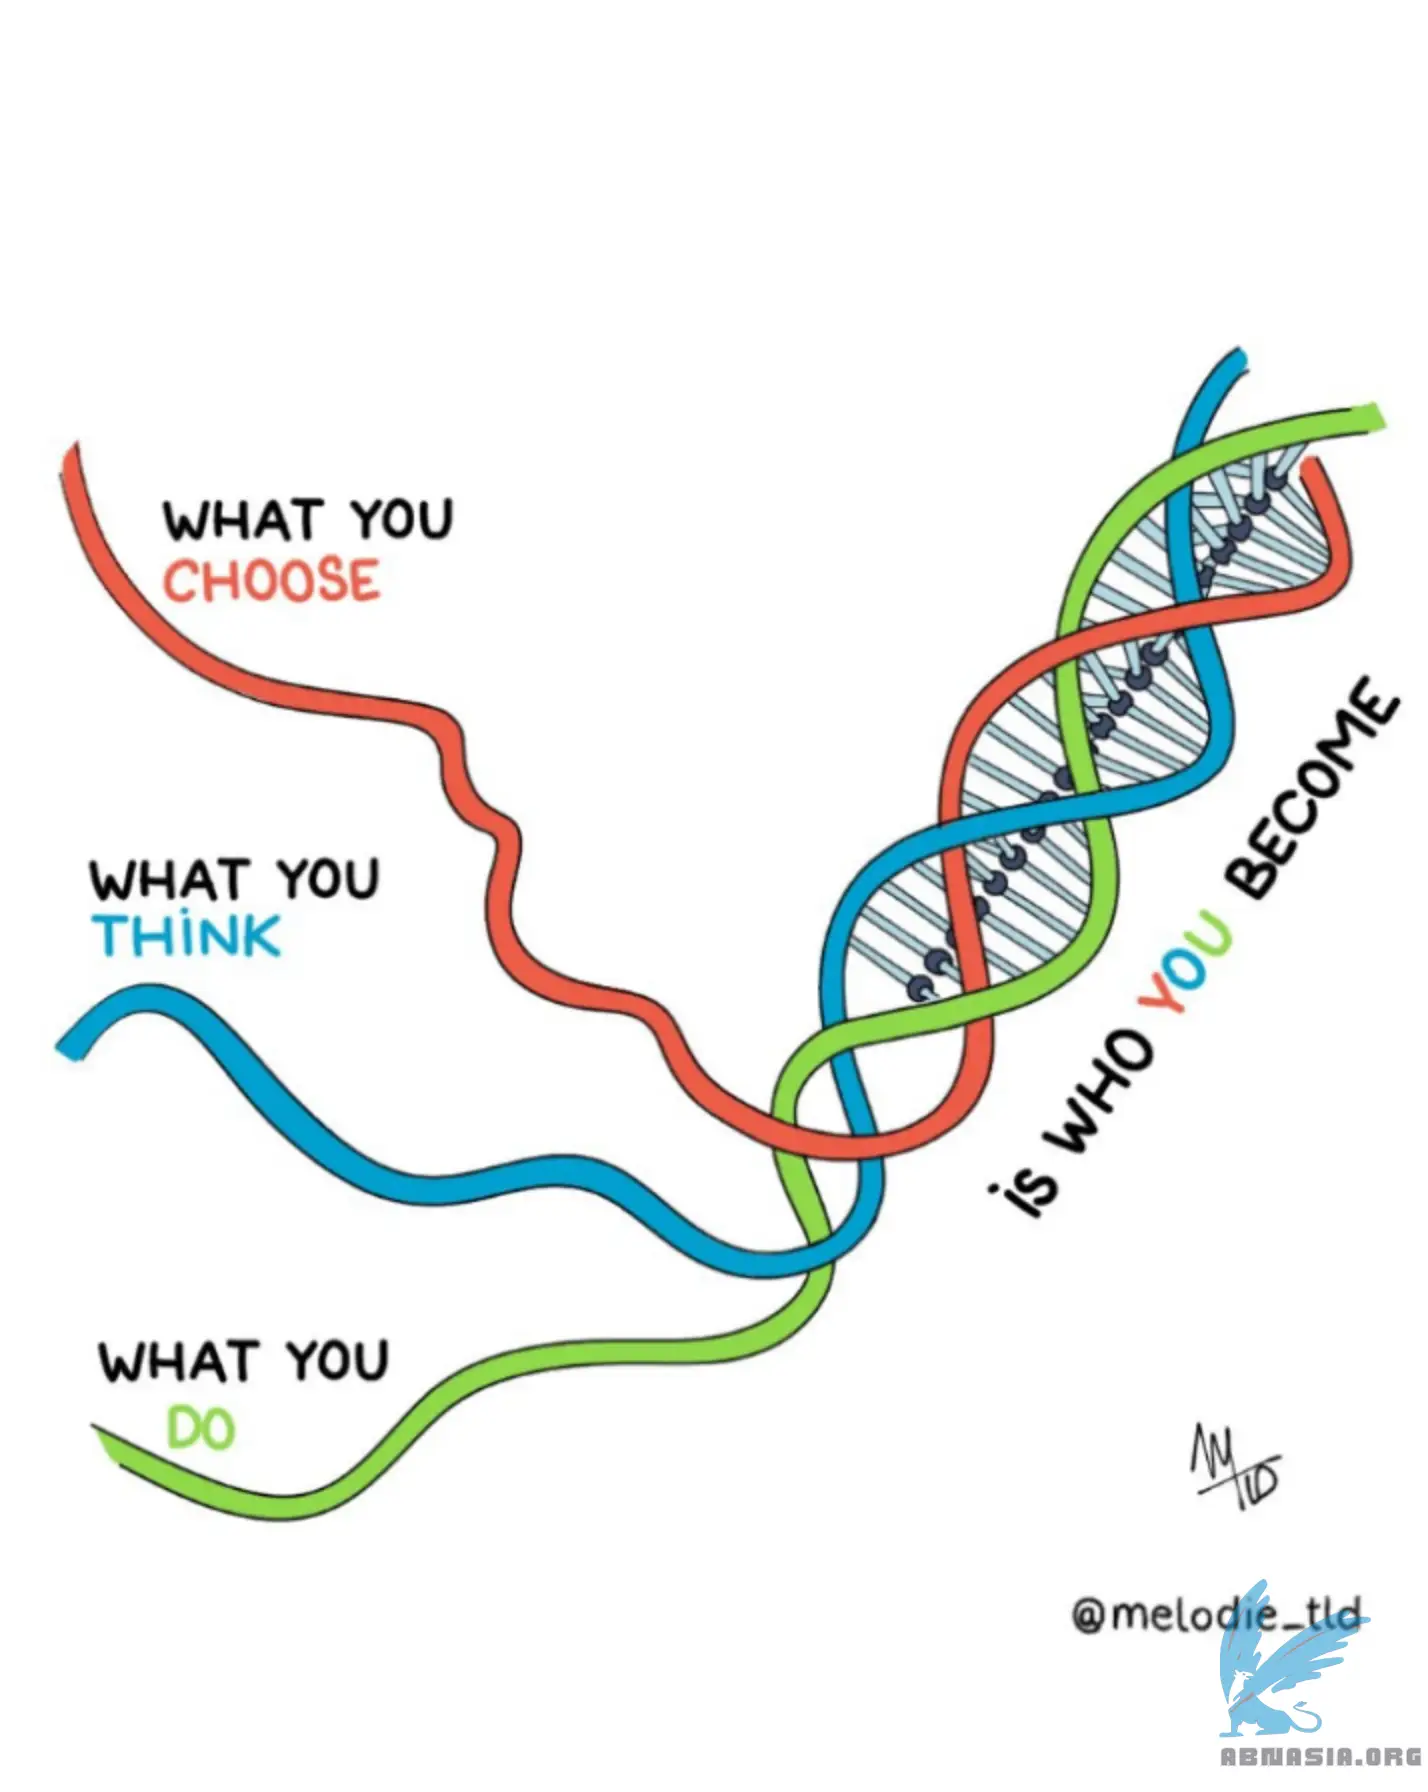 WHAT YOU
CHOOSE
WHAT YOU
THiNK
WHAT YOU
DO
iS WHO YOU BECOME
@melodie_tld
ABNASIA.ORG